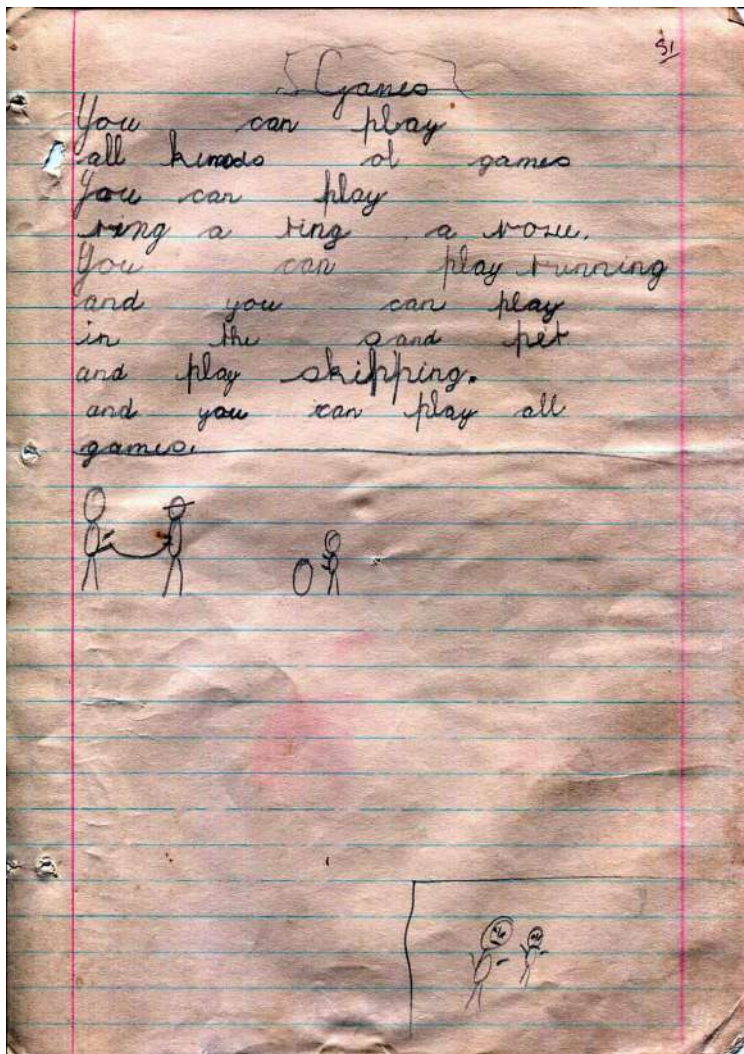 51
Games
You can play
all kinds of games
You can play
ring a ring a rosie.
You can play running
and you can play
in the sand pet
and play skipping.
and you can play all
games.